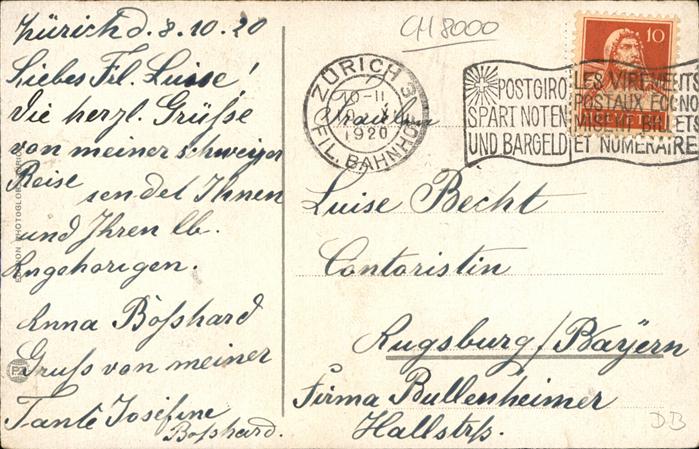 Zürich d. 8.10.20
Liebes Frl. Luise!
Die herzl. Grüsse
von meiner schweizer
Reise senden Ihnen
und Ihren lb.
Angehörigen.
Anna Boßhard
Gruss von meiner
Tante Josefine
Boßhard.
EDITION PHOTOGLOB
PZ
CH 8000
10
ZÜRICH 3
10-11
1920
FIL. BAHNHOF
POSTGIRO
SPART NOTEN
UND BARGELD
LES VIREMENTS
POSTAUX ECONO
MISENT BILLETS
ET NUMERAIRE
Fräulein
Luise Becht
Contoristin
Augsburg/Bayern
Firma Bullenheimer
Hallstrß.
DB